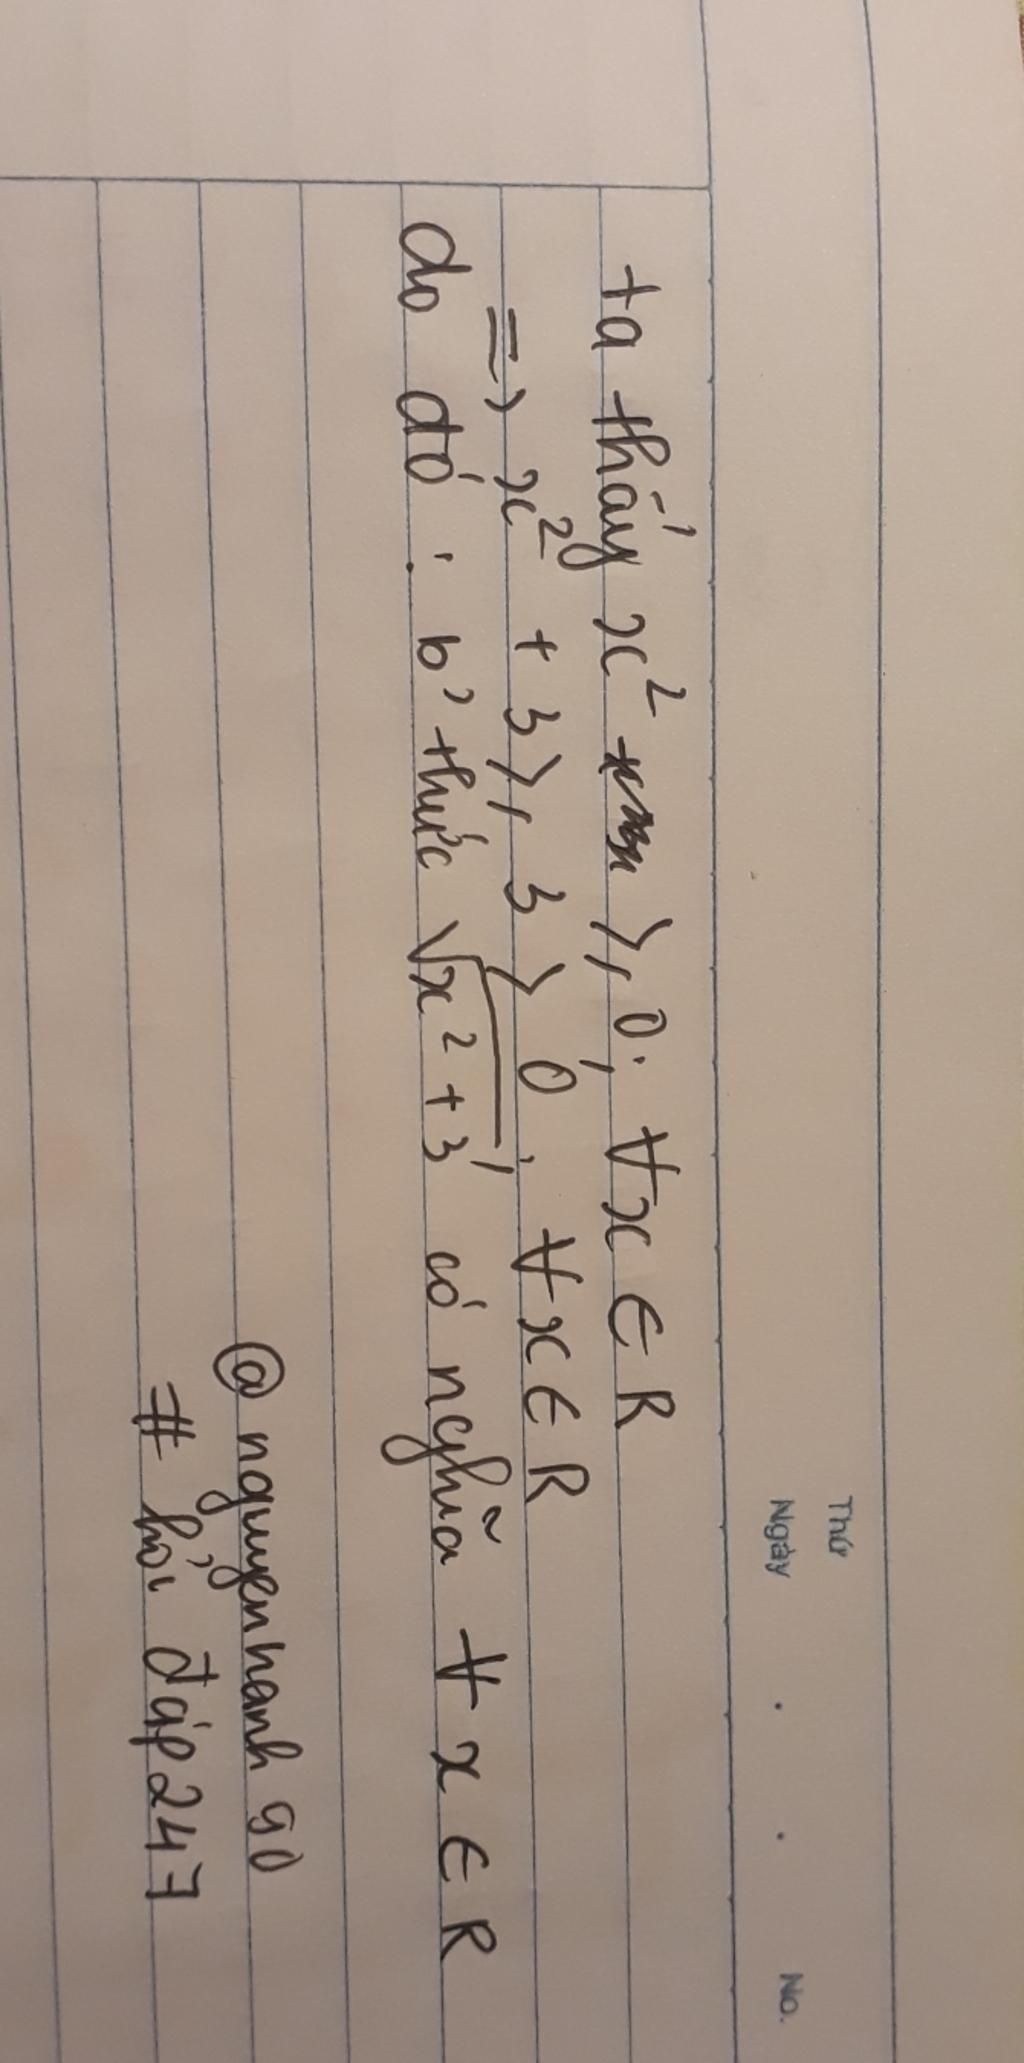 Thứ
Ngày . . No.
ta thấy x² ⩾ 0; ∀x ∈ R
=> x² + 3 ⩾ 3 > 0, ∀x ∈ R
do đó : b' thức √x² + 3 có nghĩa ∀ x ∈ R
@ nguyenhanh 90
# hỏi đáp 247